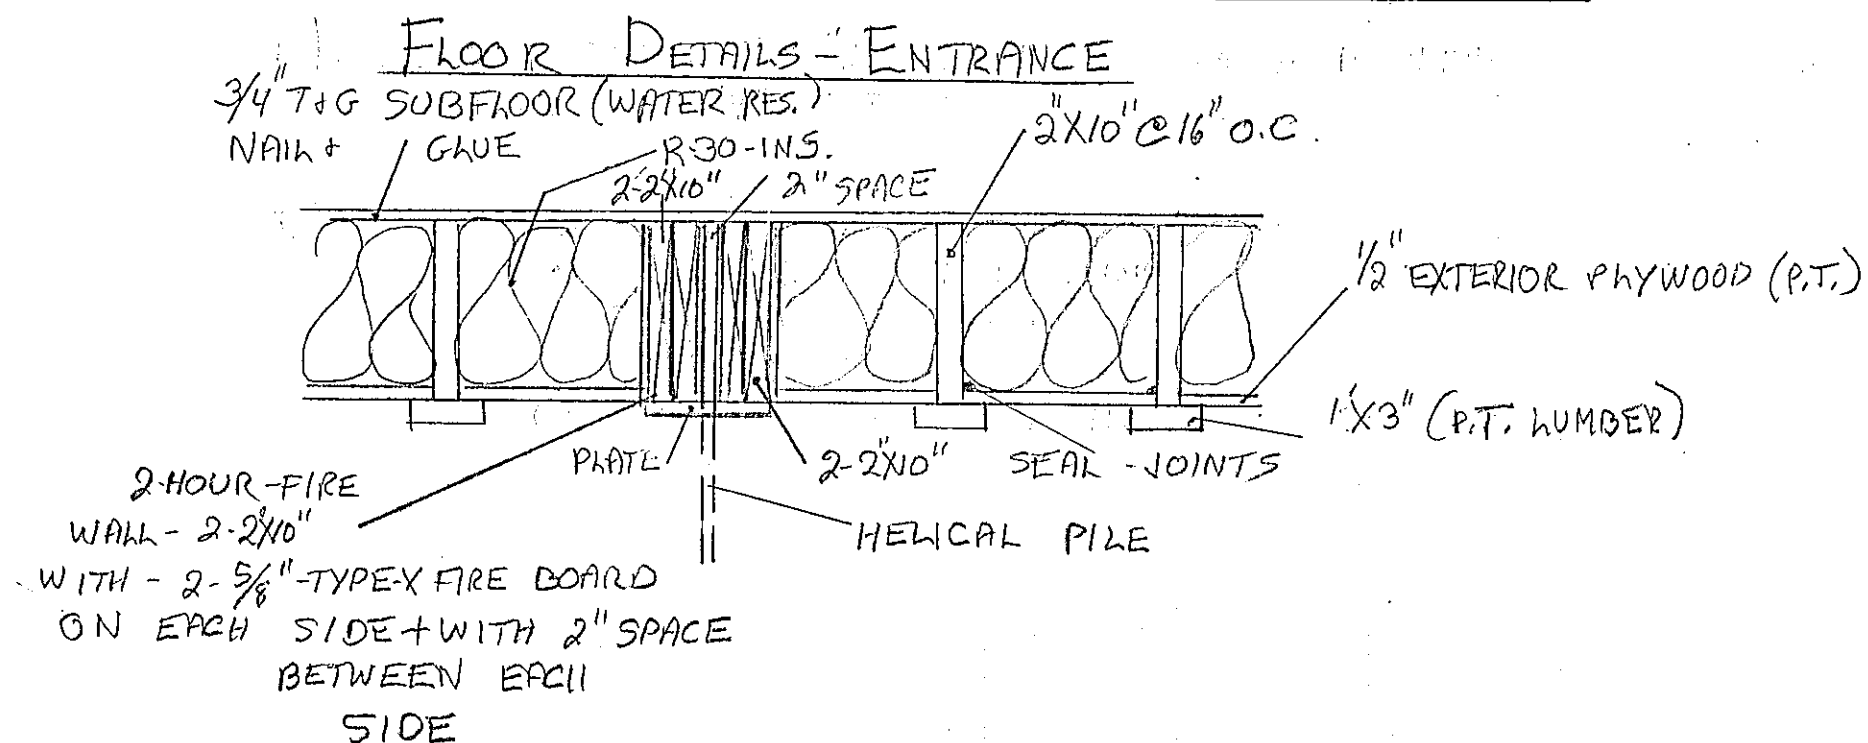 FLOOR DETAILS - ENTRANCE
3/4" T&G SUBFLOOR (WATER RES.)
NAIL & GLUE
R-30-INS.
2-2"X10"
2" SPACE
2"X10" @ 16" O.C.
1/2" EXTERIOR PLYWOOD (P.T.)
1"X3" (P.T. LUMBER)
PLATE
2-2"X10"
SEAL - JOINTS
HELICAL PILE
2-HOUR-FIRE
WALL - 2-2"X10"
WITH - 2-5/8"-TYPE-X FIRE BOARD
ON EACH SIDE + WITH 2" SPACE
BETWEEN EACH
SIDE